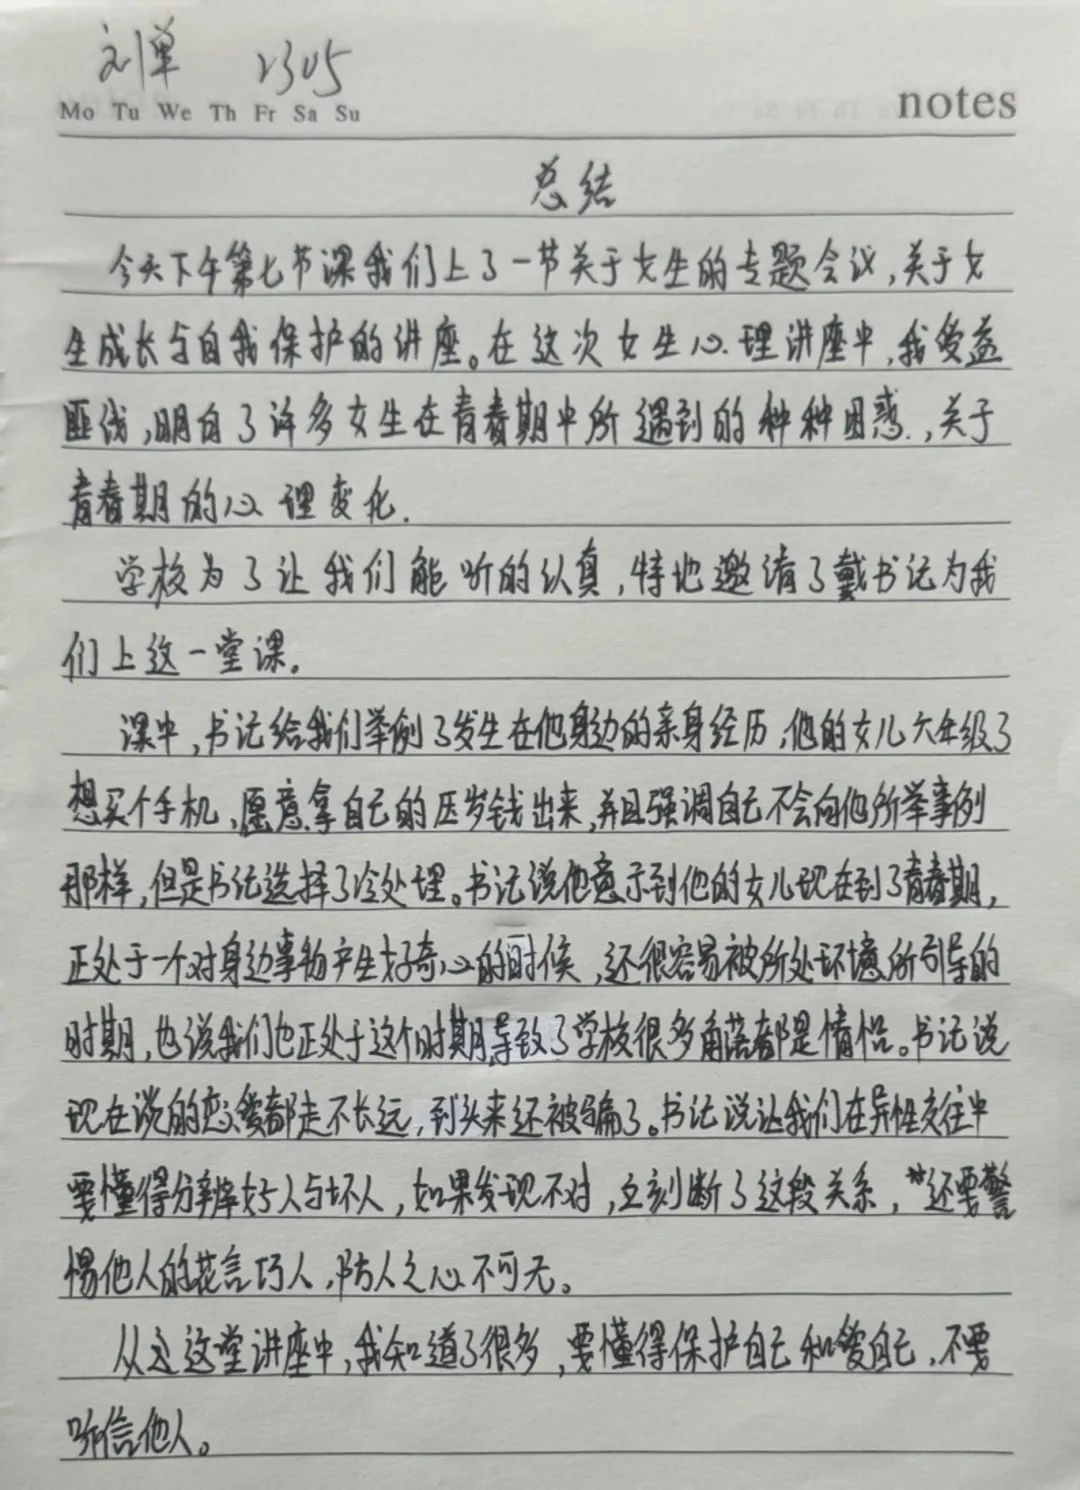 刘单 2305
Mo Tu We Th Fr Sa Su
notes
总结
今天下午第七节课我们上了一节关于女生的专题会议,关于女
生成长与自我保护的讲座。在这次女生心理讲座中,我受益
匪浅,明白了许多女生在青春期中所遇到的种种困惑.,关于
青春期的心理变化.
学校为了让我们能听的认真,特地邀请了戴书记为我
们上这一堂课.
课中,书记给我们举例了发生在他身边的亲身经历,他的女儿六年级了
想买个手机,愿意拿自己的压岁钱出来,并且强调自己不会向他所举事例
那样,但是书记选择了冷处理。书记说他意示到他的女儿现在到了青春期,
正处于一个对身边事物产生好奇心的时候,还很容易被所处环境所引导的
时期,也说我们也正处于这个时期,导致了学校很多角落都是情侣。书记说
现在谈的恋爱都走不长远,到头来还被骗了。书记说让我们在异性交往中
要懂得分辨好人与坏人,如果发现不对,立刻断了这段关系,还要警
惕他人的花言巧人,防人之心不可无。
从这堂讲座中,我知道了很多,要懂得保护自己和爱自己,不要
听信他人。